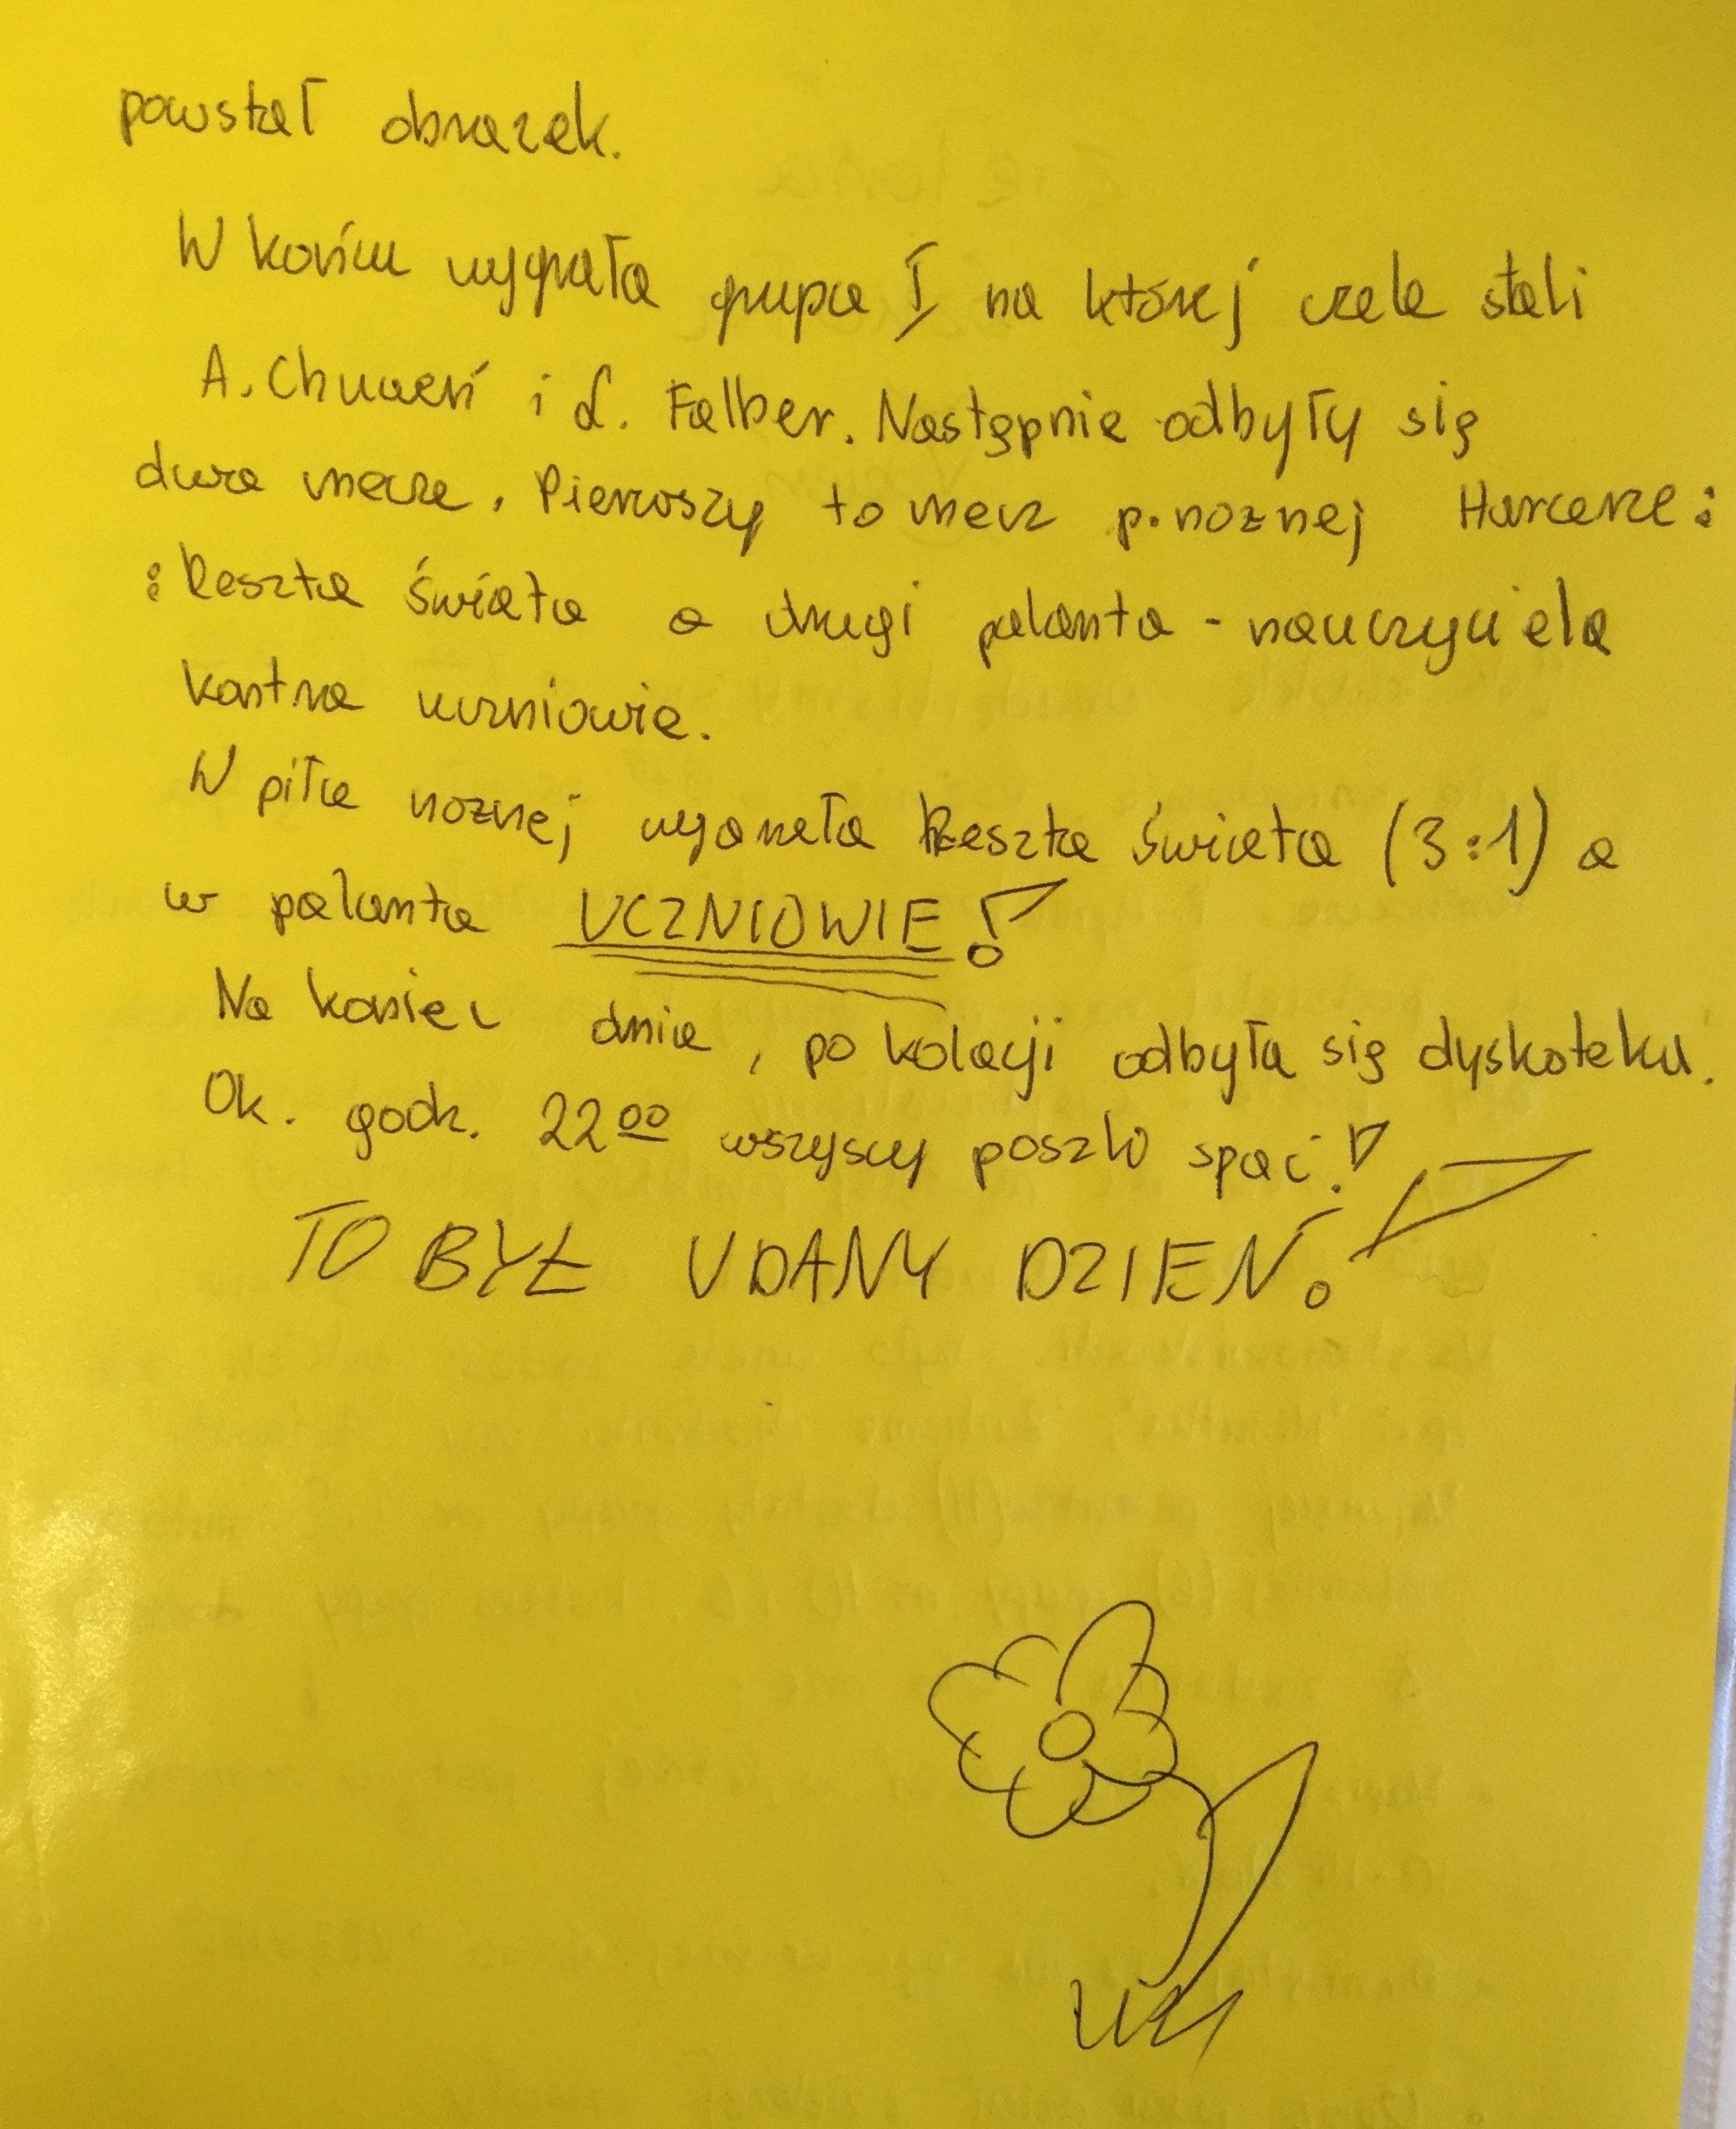 powstał obrazek.
W końcu wygrała grupa I, na której czele stali
A. Chuweń i Ł. Falber. Następnie odbyły się
dwa mecze. Pierwszy to mecz p.noznej Harcerze:
: Reszta Świata a drugi palanta - nauczyciela
kontra uczniowie.
W piłce noznej wygrała Reszta Świata (3:1) a
w palanta UCZNIOWIE!
Na koniec dnia, po kolacji odbyła się dyskoteka.
Ok. godz. 22 00 wszyscy poszło spać!
TO BYŁ UDANY DZIEŃ!